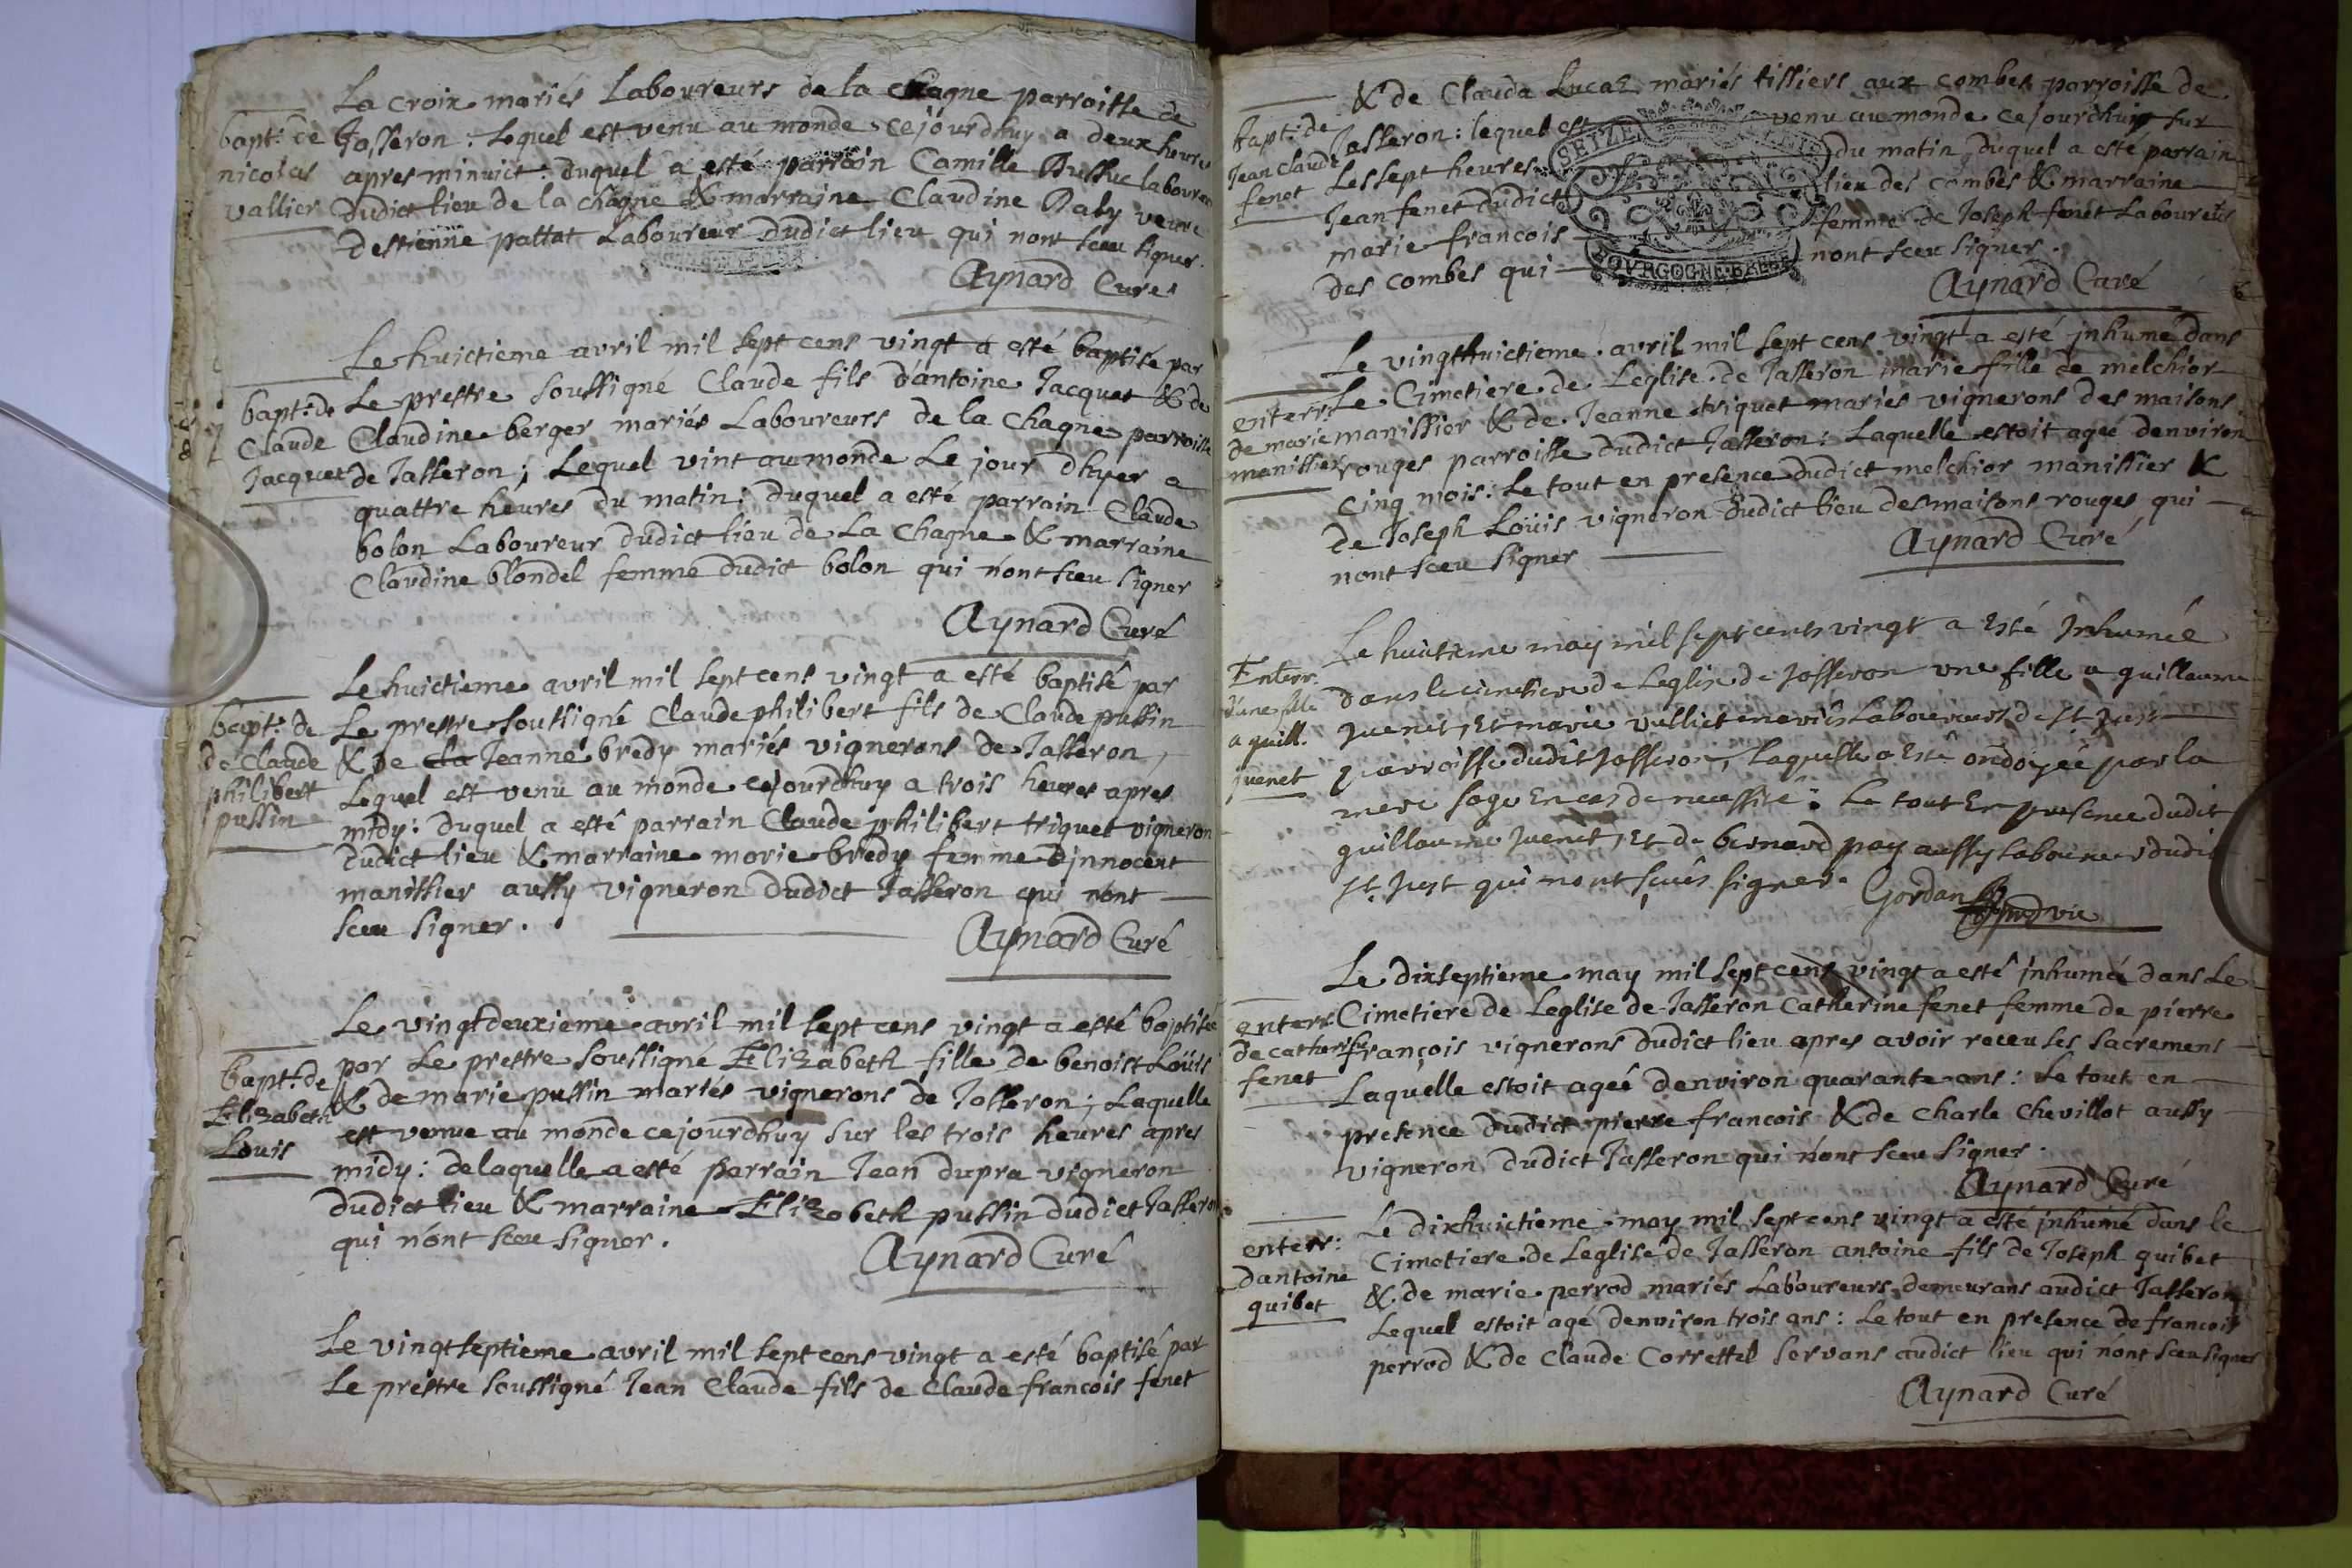 La croix mariés Laboureurs de la chagne parroisse de
bapt: de Jasseron: Lequel est venu au monde cejourdhuy a deux heures
nicolas apres minuict: duquel a esté parrain Camille Bussuc laboureur
vallier dudict lieu de la chagne & marraine Claudine Baby veuve
destienne pattat Laboureur dudict lieu qui nont sceu signer.
Aynard Curé
Le huictieme avril mil sept cens vingt a esté baptisé par
bapt: de Le prestre soussigné Claude fils d'antoine Jacquet & de
Claude Claudine berger mariés Laboureurs de la Chagne parroisse
Jacquet de Jasseron; Lequel vint au monde Le jour d'hyer a
quattre heures du matin: duquel a esté parrain Claude
bolon Laboureur dudict lieu de La Chagne & marraine
Claudine blondel femme dudict bolon qui n'ont sceu signer
Aynard Curé
Le huictieme avril mil sept cens vingt a esté baptisé par
bapt: de Le prestre soussigné Claude philibert fils de Claude pussin
de Claude & de cla Jeanne bredy mariés vignerons de Jasseron,
philibert Lequel est venu au monde cejourdhuy a trois heures apres
pussin midy: duquel a esté parrain Claude philibert triquet vigneron
dudict lieu & marraine marie bredy femme d'innocent
manissier aussy vigneron dudict Jasseron qui nont
sceu signer.
Aynard Curé
Le vingtdeuxieme avril mil sept cens vingt a esté baptisée
par Le prestre soussigné Elizabeth fille de benoist Loüis
bapt: de & de marie pussin mariés vignerons de Jasseron; Laquelle
Elizabeth est venue au monde cejourdhuy sur les trois heures apres
Louis midy: delaquelle a esté parrain Jean dupra vigneron
dudict lieu & marraine Elizabeth pussin dudict Jasseron
qui n'ont sceu signer.
Aynard Curé
Le vingtseptieme avril mil sept cens vingt a esté baptisé par
Le prestre soussigné Jean Claude fils de Claude francois fenet
& de Clauda Lucaz mariés tissiers aux combes parroisse de
bapt: de Jasseron: lequel est venu au monde cejourdhuy sur
Jean Claude Les sept heures du matin, duquel a esté parrain
fenet Jean fenet dudict lieu des combes & marraine
marie francois femme de Joseph fenet Laboureurs
des combes qui nont sceu signer.
SEIZE
BOVRGOGNE BRESSE
Aynard Curé
Le vingthuictieme avril mil sept cens vingt a esté inhumé dans
enterr: Le Cimetiere de Leglise de Jasseron marie fille de melchior
de marie manissier & de Jeanne triquet mariés vignerons des maisons
manissier rouges parroisse dudict Jasseron: Laquelle estoit ageé denviron
cinq mois: Le tout en presence dudict melchior manissier &
de Joseph Loüis vigneron dudict lieu des maisons rouges qui
nont sceu signer
Aynard Curé
Le huictieme may mil sept cents vingt a Esté Inhumée
Enterr. dans le cimetiere de Leglise de Jasseron une fille a guillaume
d'une fille Juenet, Et marie vulliet mariés Laboureurs de St Just
a guill. parroisse dudit Jasseron, Laquelle a Esté ondoyée par la
juenet mere sage En cas de necessité: Le tout En presence dudit
guillaume Juenet, Et de bernard pay aussy laboureur dudit
St Just qui n'ont sceus signer. Gordan
vic
Le dixseptieme may mil sept cens vingt a esté inhumeé dans Le
enterr: Cimetiere de Leglise de Jasseron Catherine fenet femme de pierre
de catherine françois vignerons dudict lieu apres avoir receu ses sacremens
fenet Laquelle estoit ageé denviron quarante ans: Le tout en
presence dudict pierre francois & de Charle Chevillot aussy
vigneron dudict Jasseron qui n'ont sceu signer.
Aynard Curé
Le dixhuictieme may mil sept cens vingt a esté inhumé dans le
enterr: Cimetiere de Leglise de Jasseron antoine fils de Joseph quibet
dantoine & de marie perrod mariés Laboureurs demeurans audict Jasseron
quibet Lequel estoit agé denviron trois ans: Le tout en presence de francois
perrod & de Claude Correttel servans audict lieu qui n'ont sceu signer
Aynard Curé